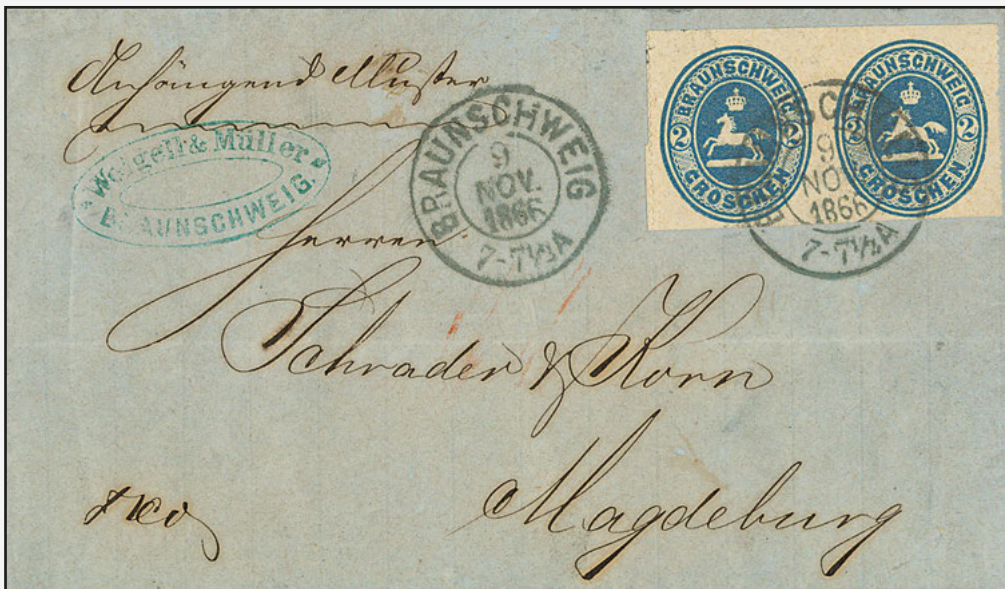 Anhängend Muster
Weigell & Müller
BRAUNSCHWEIG.
BRAUNSCHWEIG
9
NOV.
1866
7-7½A
BRAUNSCHWEIG
2 2
GROSCHEN
BRAUNSCHWEIG
2 2
GROSCHEN
BRAUNSCHWEIG
9
NOV.
1866
7-7½A
Herren
Schrader & Korn
Magdeburg